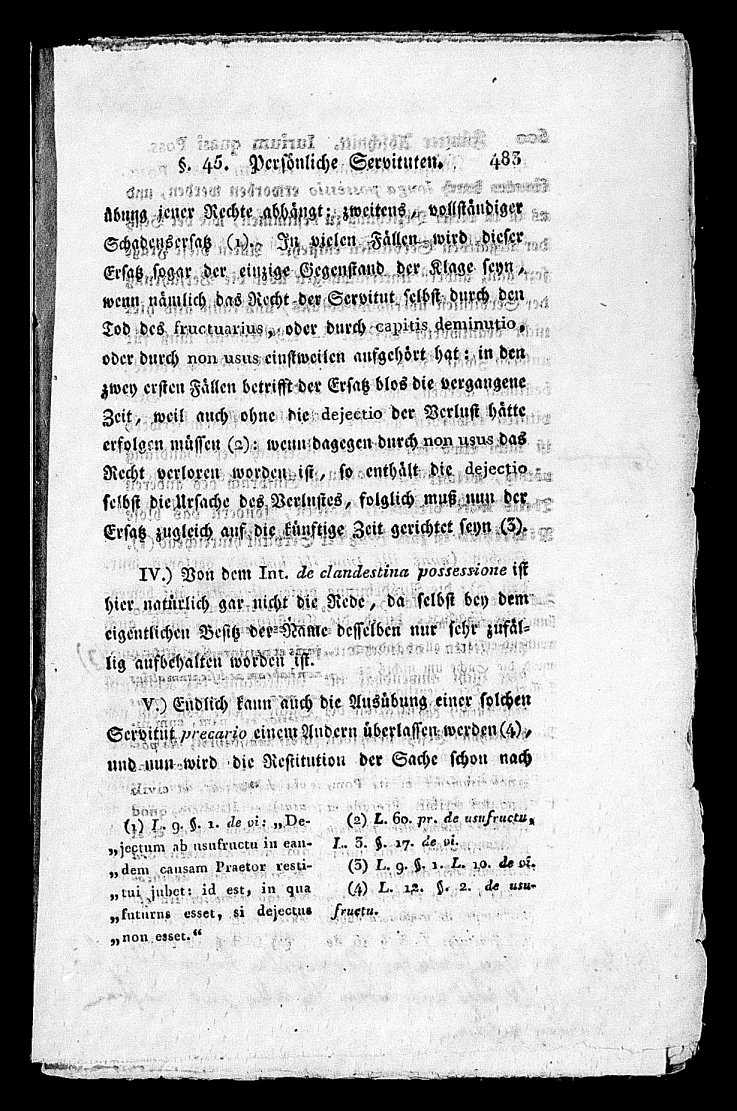 §. 45. Persönliche Servituten. 483
übung jener Rechte abhängt; zweitens, vollständiger
Schadensersatz (1). In vielen Fällen wird dieser
Ersatz sogar der einzige Gegenstand der Klage seyn,
wenn nämlich das Recht der Servitut selbst durch den
Tod des fructuarius, oder durch capitis deminutio,
oder durch non usus einstweilen aufgehört hat: in den
zwey ersten Fällen betrifft der Ersatz blos die vergangene
Zeit, weil auch ohne die dejectio der Verlust hätte
erfolgen müssen (2): wenn dagegen durch non usus das
Recht verloren worden ist, so enthält die dejectio
selbst die Ursache des Verlustes, folglich muß nun der
Ersatz zugleich auf die künftige Zeit gerichtet seyn (3).
IV.) Von dem Int. de clandestina possessione ist
hier natürlich gar nicht die Rede, da selbst bey dem
eigentlichen Besitz der Name desselben nur sehr zufäl-
lig aufbehalten worden ist.
V.) Endlich kann auch die Ausübung einer solchen
Servitut precario einem Andern überlassen werden (4),
und nun wird die Restitution der Sache schon nach
(1) L. 9. §. 1. de vi: „De-
„jectum ab usufructu in ean-
„dem causam Praetor resti-
„tui jubet: id est, in qua
„futurus esset, si dejectus
„non esset.“
(2) L. 60. pr. de usufructu,
L. 3. §. 17. de vi.
(3) L. 9. §. 1. L. 10. de vi.
(4) L. 12. §. 2. de usu-
fructu.